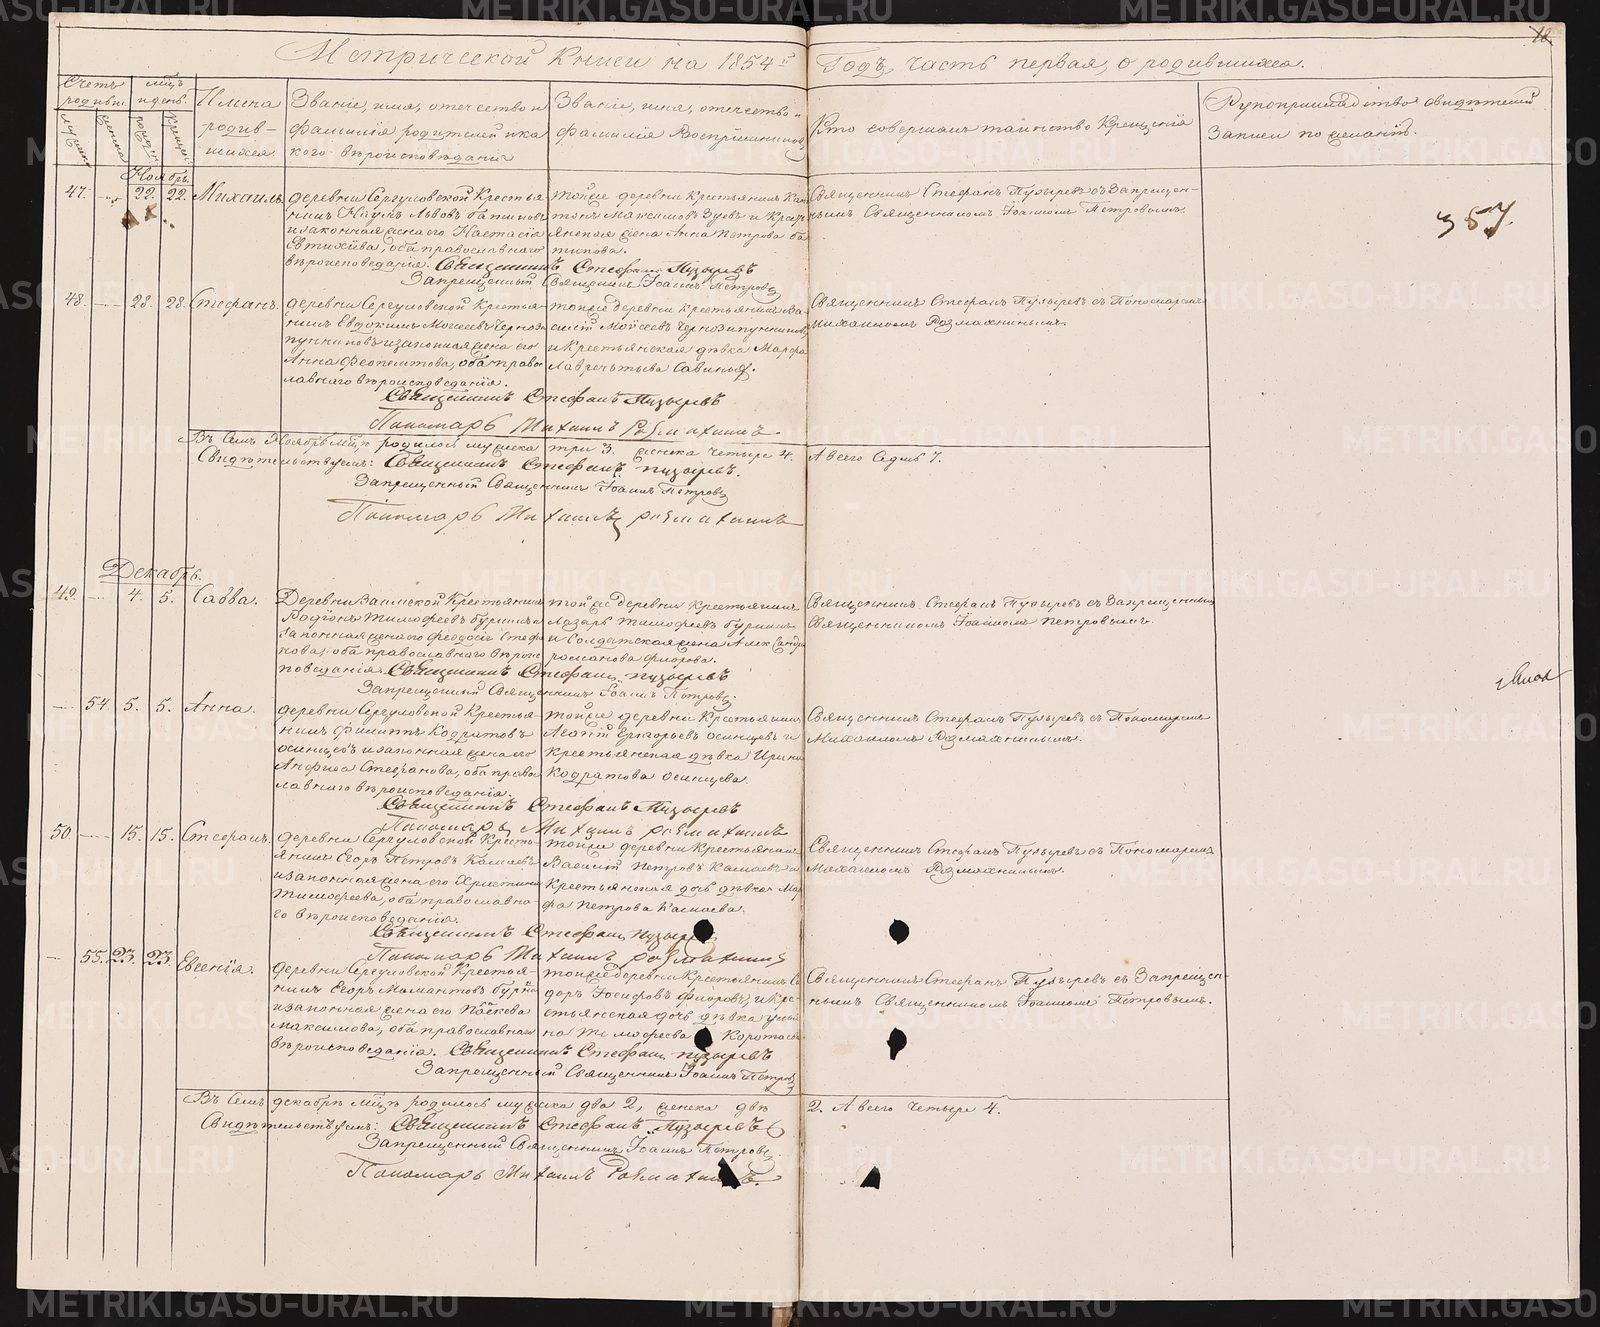 Метрической Книги на 1854й Годъ, часть первая, о родившихся.
18
Счетъ родивш.
мѣц. и день.
Имена родившихся
Званіе, имя, отечество и фамилія родителей и какого вѣроисповѣданія
Званіе, имя, отечество и фамилія Воспріемниковъ
Кто совершалъ таинство Крещенія
Рукоприкладство свидѣтелей Записи по желанію.
Ноябрь.
47. 22. 22. Михаилъ
деревни Сергуловской Крестьянинъ Наумъ Львовъ
и законная жена его Настасія
Евтихіева, оба православнаго
вѣроисповѣданія.
той же деревни крестьянинъ
Максимовъ Зуевъ и Крестьянская жена Анна Петрова
Священникъ Стефанъ Пузыревъ съ Запрещеннымъ Священникомъ Іоанномъ Петровымъ.
357
Священникъ Стефанъ Пузыревъ
Запрещенный Священникъ Іоаннъ Петровъ
48. 28. 28. Стефанъ.
деревни Сергуловской Крестьянинъ Евдокимъ Моисеевъ
и законная жена его
Анна Феопемптова, оба православнаго вѣроисповѣданія.
той же деревни Крестьянинъ Василій Моисеевъ
и Крестьянская дѣвка Марфа
Лаврентьева Савиныхъ.
Священникъ Стефанъ Пузыревъ съ Пономаремъ
Михаиломъ Размахнинымъ.
Священникъ Стефанъ Пузыревъ
Пономарь Михаилъ Размахнинъ.
Въ Семъ Ноябрѣ мѣц. родилось мужеска три 3. женска четыре 4. А всего Седмь 7.
Свидѣтельствуемъ: Священникъ Стефанъ Пузыревъ.
Запрещенный Священникъ Іоаннъ Петровъ
Пономарь Михаилъ Размахнинъ
Декабрь.
49. 4. 5. Савва.
Деревни Заимской Крестьянинъ
Родіонъ Тимофеевъ Буринъ и
законная жена его Феодосія Стефанова, оба православнаго вѣроисповѣданія.
той же деревни крестьянинъ
Лазарь Тимофеевъ Буринъ
и Солдатская жена Александра
Романова Флорова.
Священникъ Стефанъ Пузыревъ съ Запрещеннымъ
Священникомъ Іоанномъ Петровымъ.
Священникъ Стефанъ Пузыревъ
Запрещенный Священникъ Іоаннъ Петровъ.
54. 5. 5. Анна.
деревни Сергуловской Крестьянинъ Филиппъ Кодратовъ
Осинцевъ и законная жена его
Анфиса Стефанова, оба православнаго вѣроисповѣданія.
той же деревни Крестьянинъ
Леонтій Григорьевъ Осинцевъ и
крестьянская дѣвка Ирина
Кодратова Осинцева.
Священникъ Стефанъ Пузыревъ съ Пономаремъ
Михаиломъ Размахнинымъ.
Священникъ Стефанъ Пузыревъ
Пономарь Михаилъ Размахнинъ
50. 15. 15. Стефанъ.
деревни Сергуловской Крестьянинъ Егоръ Петровъ Камаевъ
и законная жена его Христина
Тимофеева, оба православнаго вѣроисповѣданія.
той же деревни Крестьянинъ
Василій Петровъ Камаевъ и
Крестьянская дочь дѣвка Марфа Петрова Камаева.
Священникъ Стефанъ Пузыревъ съ Пономаремъ
Михаиломъ Размахнинымъ.
Священникъ Стефанъ Пузыревъ
Пономарь Михаилъ Размахнинъ
55. 23. 23. Евгенія.
деревни Сергуловской Крестьянинъ Егоръ Мамантовъ Буринъ
и законная жена его
Максимова, оба православнаго
вѣроисповѣданія.
той же деревни Крестьянинъ
Іосифовъ Флоровъ, и Крестьянская дочь дѣвка
Тимофеева
Священникъ Стефанъ Пузыревъ съ Запрещеннымъ Священникомъ Іоанномъ Петровымъ.
Священникъ Стефанъ Пузыревъ
Запрещенный Священникъ Іоаннъ Петровъ
Въ Семъ декабрѣ мѣцѣ родилось мужеска два 2, женска двѣ 2. А всего Четыре 4.
Свидѣтельствуемъ: Священникъ Стефанъ Пузыревъ
Запрещенный Священникъ Іоаннъ Петровъ.
Пономарь Михаилъ Размахнинъ.
METRIKI.GASO-URAL.RU